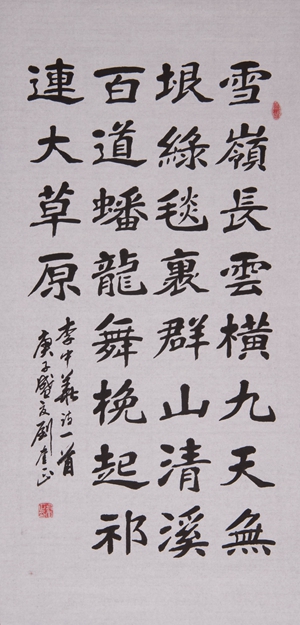 雪嶺長雲橫九天無
垠綠毯裹群山清溪
百道蟠龍舞挽起祁
連大草原
李中華詩一首
庚子盛夏劉